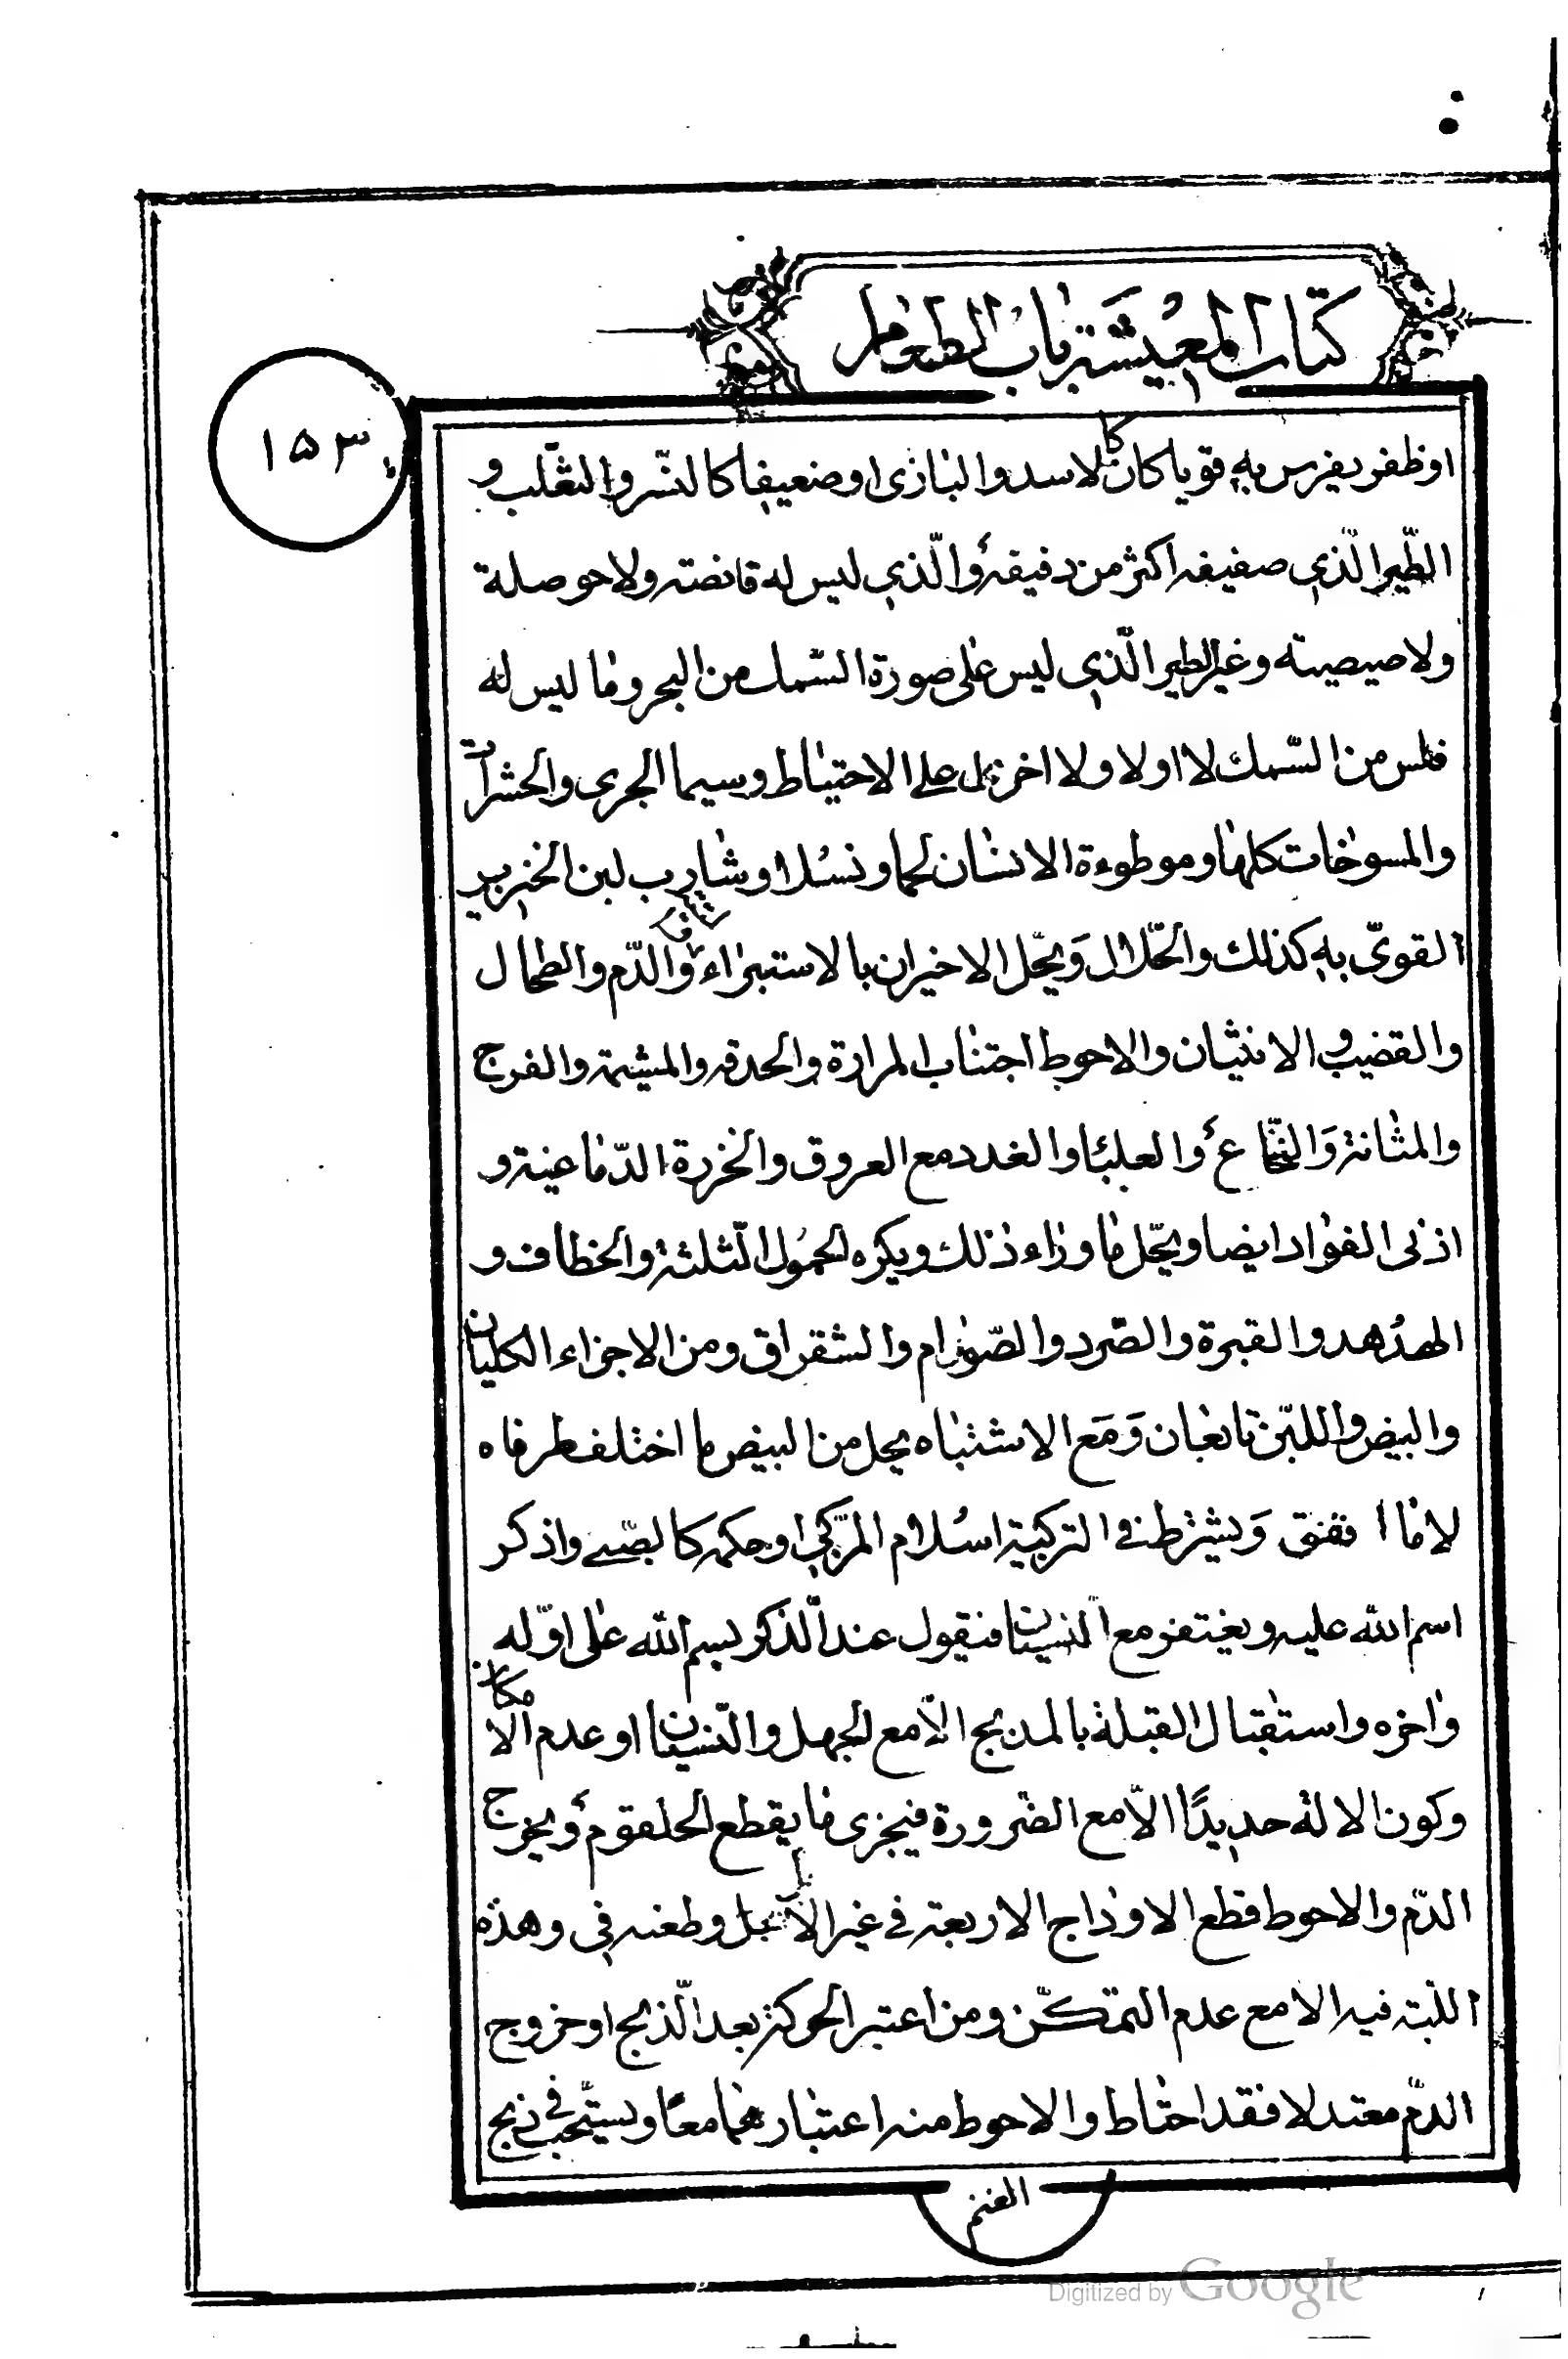 كتاب المعيشة باب الطعام
١٥٣
او ظفر يفرس به قويا كان كالاسد والبازى او ضعيفا كالنسر والثعلب و
الطّير الّذي صفيفه اكثر من دفيفه والّذي ليس له قانصته ولا حوصلة
ولا صيصيته وغير الطير الّذي ليس على صورة السّمك من البحر وما ليس له
فلس من السّمك لا اولا ولا اخر على الاحتياط وسيما الجرى والحشرات
والمسوخات كلها وموطوءة الانسان لحما ونسلا وشارب لبن الخنزير
القوىّ به كذلك والجّلال وَيحّل الاخيران بالاستبراء والدّم والطحال
والقضيب و الانثيان والاحوط اجتناب المرارة والحدقه والمشيمة والفرج
والمثانة وَالنّخاع والعلبا والغدد مع العروق والخرزة الدّماغية و
اذنى الفؤاد ايضا ويحّل ما وراء ذلك ويكره لحمول الثلثة والخطاف و
الهدهد والقبرة والصّرد والصّوام والشقراق ومن الاجزاء الكليتان
والبيض واللبن تابعان وَمَع الاشتباه يحل من البيض ما اختلف طرفاه
لا ما اتفق وَيشترط في التزكية اسلام المزّكي او حكمه كالصّبى واذكر
اسم الله عليه ويغتفر مع النسيان فيقول عند الّذكر بسم الله على اوّله
واخره واستقبال القبلة بالمذبح الاّ مع الجهل والنّسيان او عدم الامكان
وكون الالة حديدًا الاّ مع الضّرورة فيجزى ما يقطع الحلقوم ويخرج
الدّم والاحوط قطع الاوداج الاربعة في غير الابل وطعنه في وهذه
اللّبتة فيه الا مع عدم التمكّن ومن اعتبر الحركة بعد الّذبح او خروج
الدّم معتدلا فقد احتاط والاحوط منه اعتبارهما معًا ويستحّب في ذبح
الغنم
Digitized by Google